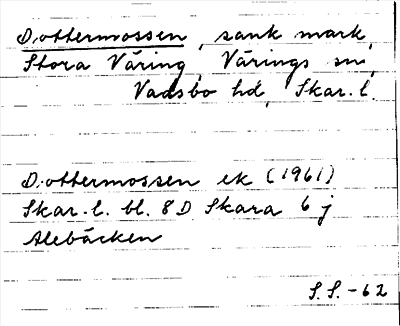 D:ottermossen, sank mark,
Stora Väring, Värings sn,
Vadsbo hd, Skar. l.
D:ottermossen ek (1961)
Skar. l. bl. 8 D Skara 6 j
Alebäcken
S.S. -62